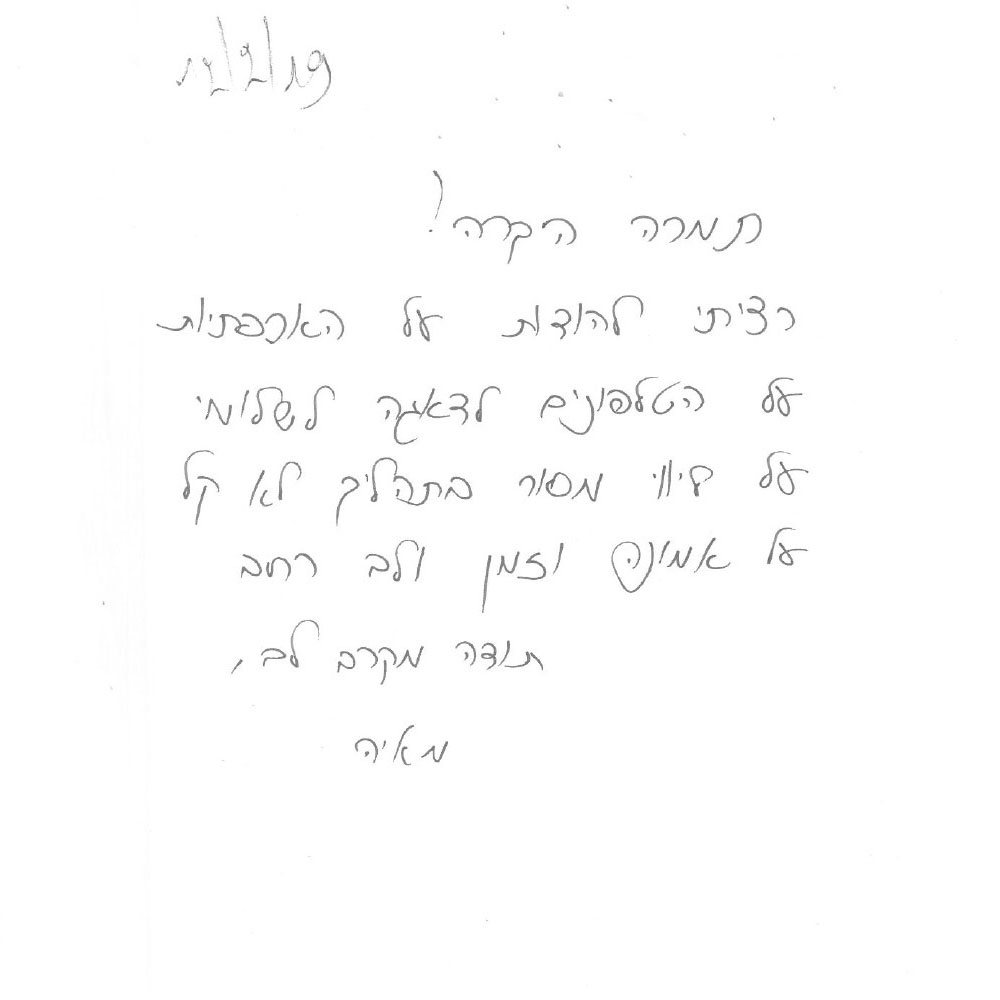 12/2/19
תמרה היקרה!
רציתי להודות על האכפתיות
על הטלפונים לדאגה לשלומי
על ליווי מסור בתהליך לא קל
על אמונה וזמן ולב רחב
תודה מקרב לב,
מאיה